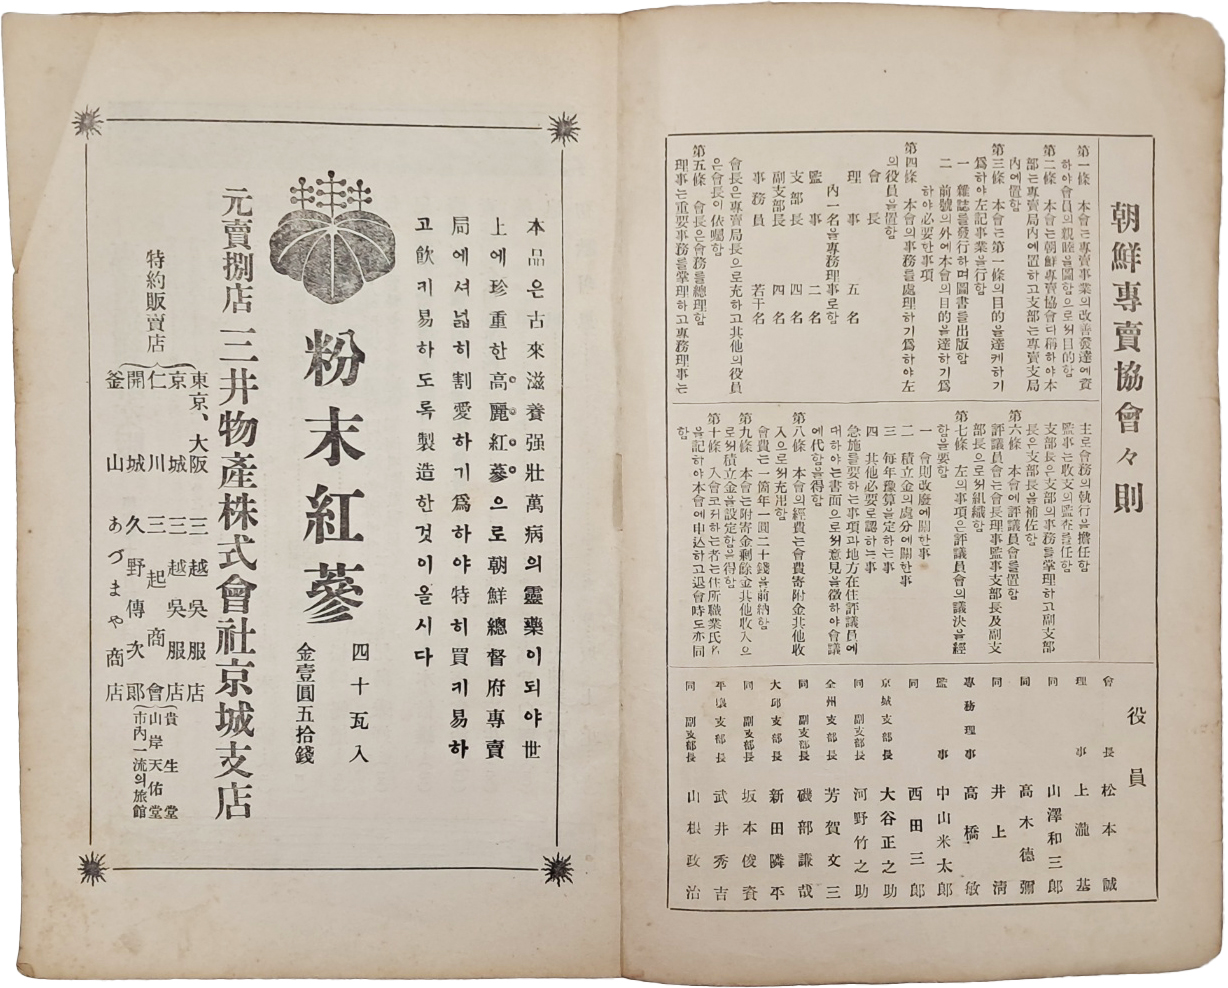 朝鮮專賣協會々則
第一條 本會는專賣事業의改善發達에資
하야會員의親睦을圖함으로써目的함
第二條 本會는朝鮮專賣協會라稱하야本
部는專賣局內에置하고支部는專賣支局
內에置함
第三條 本會는第一條의目的을達케하기
爲하야左記事業을行함
一 雜誌를發行하며圖書를出版함
二 前號의外에本會의目的을達하기爲
하야必要한事項
第四條 本會의事務를處理하기爲하야左
의役員을置함
會長
理事 五名
內一名을專務理事로함
監事 二名
支部長 四名
副支部長 四名
事務員 若干名
會長은專賣局長으로充하고其他의役員
은會長이依囑함
第五條 會長은會務를總理함
理事는重要事務를掌理하고專務理事는
主로會務의執行을擔任함
監事는收支의監査를任함
支部長은支部의事務를掌理하고副支部
長은支部長을補佐함
第六條 本會에評議員會를置함
評議員會는會長理事監事支部長及副支
部長으로써組織함
第七條 左의事項은評議員會의議決을經
함을要함
一 會則改廢에關한事
二 積立金의處分에關한事
三 每年豫算을定하는事
四 其他必要로認하는事
急施를要하는事項과地方在住評議員에
대하야는書面으로써意見을徵하야會議
에代함을得함
第八條 本會의經費는會費寄附金其他收
入으로써充當함
會費는一箇年一圓二十錢을前納함
第九條 本會는附寄金剩餘金其他收入으
로써積立金을設定함을得함
第十條 入會코저하는者는住所職業氏名
을記하야本會에申込하고退會時도亦同
함
役員
會長 松本誠
理事 上瀧基
同 山澤和三郞
同 高木德彌
同 井上淸
專務理事 高橋敏
監事 中山米太郞
同 西田三郞
京城支部長 大谷正之助
同 副支部長 河野竹之助
全州支部長 芳賀文三
同 副支部長 磯部謙哉
大邱支部長 新田隣平
同 副支部長 坂本俊資
平壤支部長 武井秀吉
同 副支部長 山根政治
本品은古來滋養强壯萬病의靈藥이되야世
上에珍重한高麗紅蔘으로朝鮮總督府專賣
局에셔넓히割愛하기爲하야特히買키易하
고飮키易하도록製造한것이올시다
粉末紅蔘
四十瓦入
金壹圓五拾錢
元賣捌店 三井物產株式會社京城支店
特約販賣店
東京、大阪 三越吳服店
京城 三越吳服店
仁川 三起商會
開城 久野傳次郞
釜山 あづまや商店
貴生堂
山岸天佑堂
市內一流의旅館